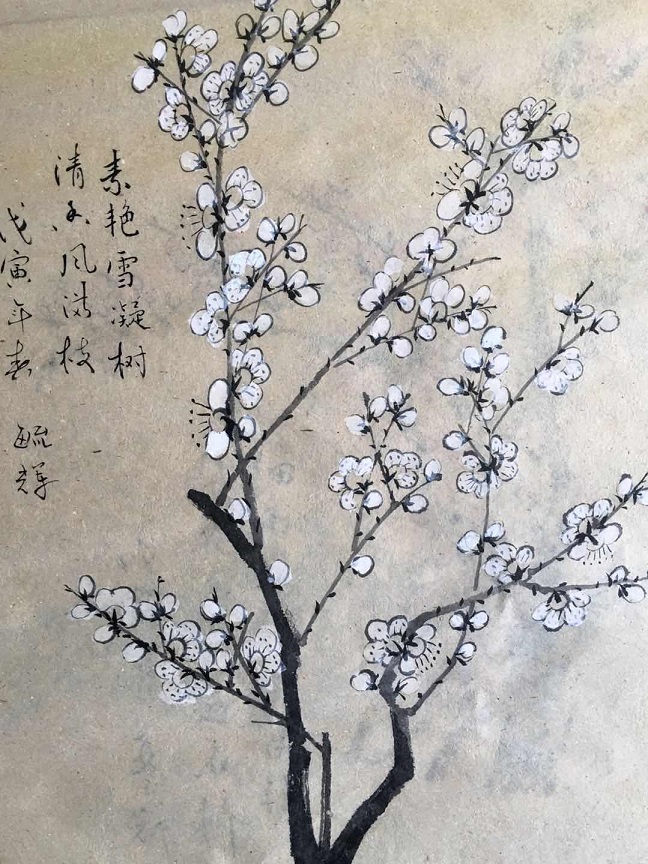 素艳雪凝树
清香风满枝
戊寅年春
毓彗